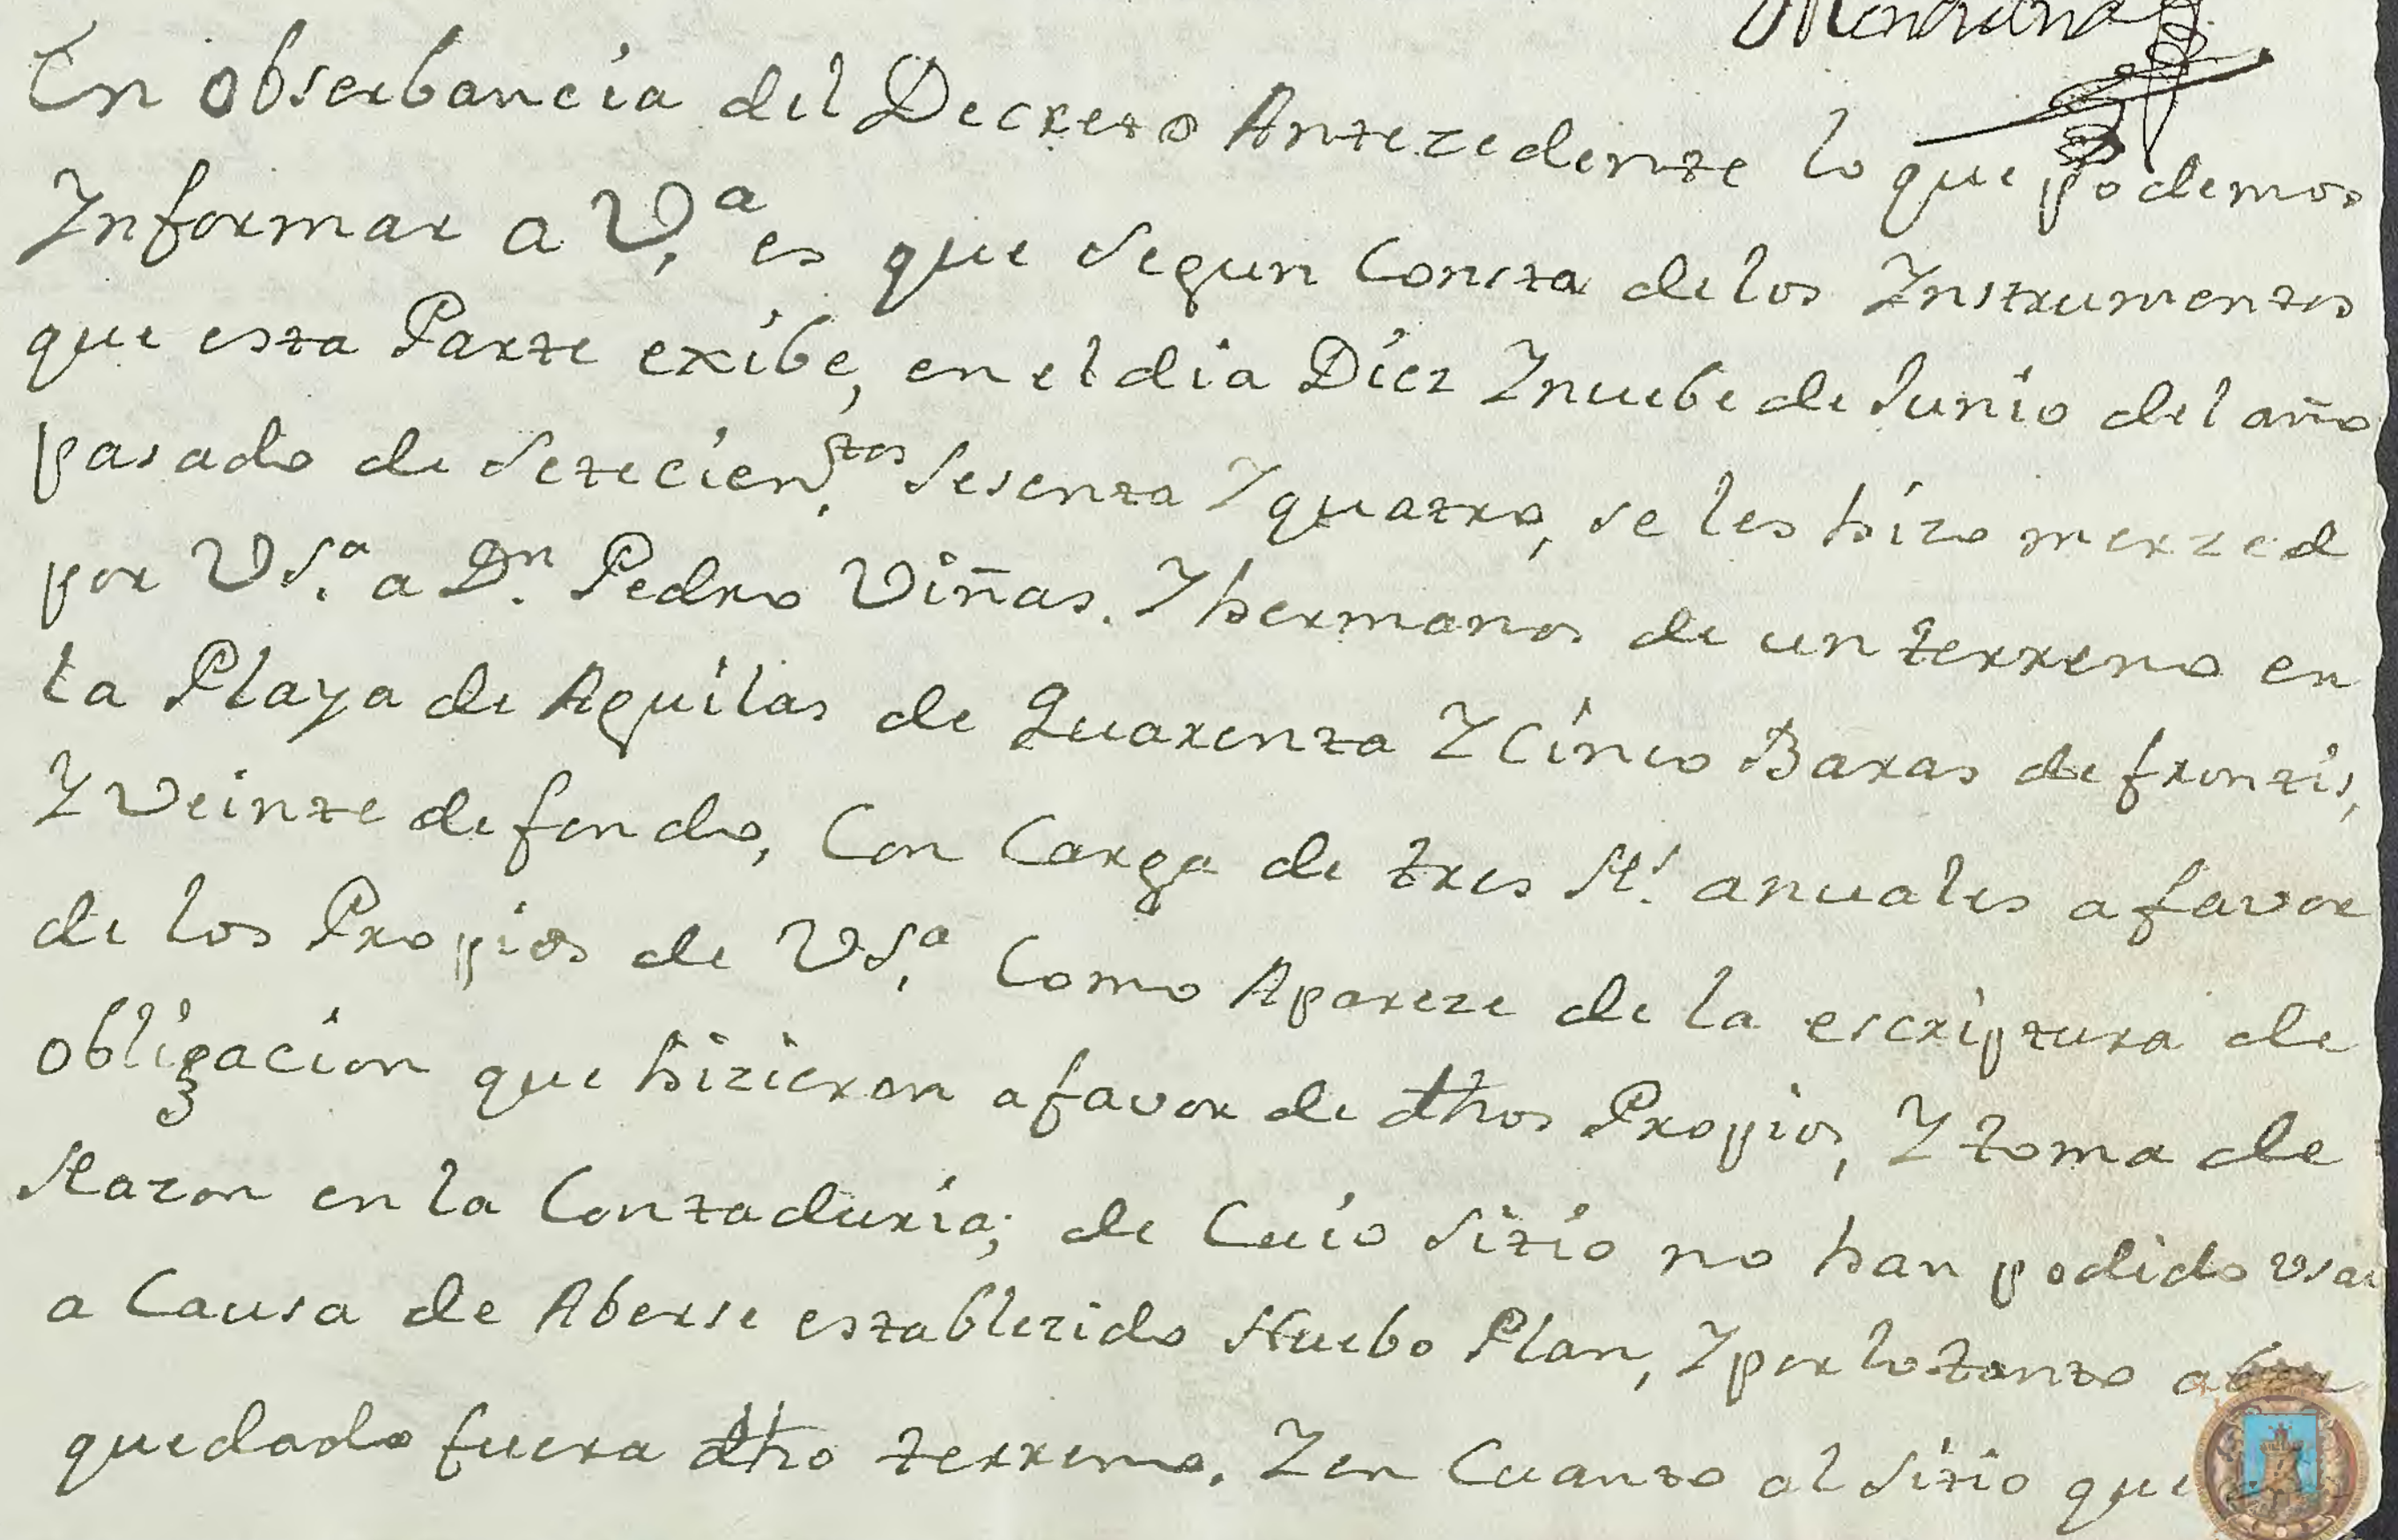 En obserbancia del Decreto Antezedente lo que podemos
Informar a V.ª es que segun Consta de los Instrumentos
que esta Parte exibe, en el dia Diez Y nuebe de Junio del año
pasado de setecien.tos sesenta Y quatro, se les hizo merzed
por VS.ª a Dn. Pedro Viñas. Y hermanos de un terreno en
la Playa de Aguilas de Quarenta Y Cinco Baras de frontis,
Y Veinte de fondo, Con Carga de tres Rs. anuales a favor
de los Propios de VS.ª Como Apareze de la escriptura de
obligacion que hizieron a favor de dhos Propios, Y toma de
Razon en la Contaduria; de Cuio sitio no han podido vsar
a Causa de Aberse establezido Nuebo Plan, Y por lo tanto aber
quedado fuera dho terreno. Y en Cuanto al sitio que